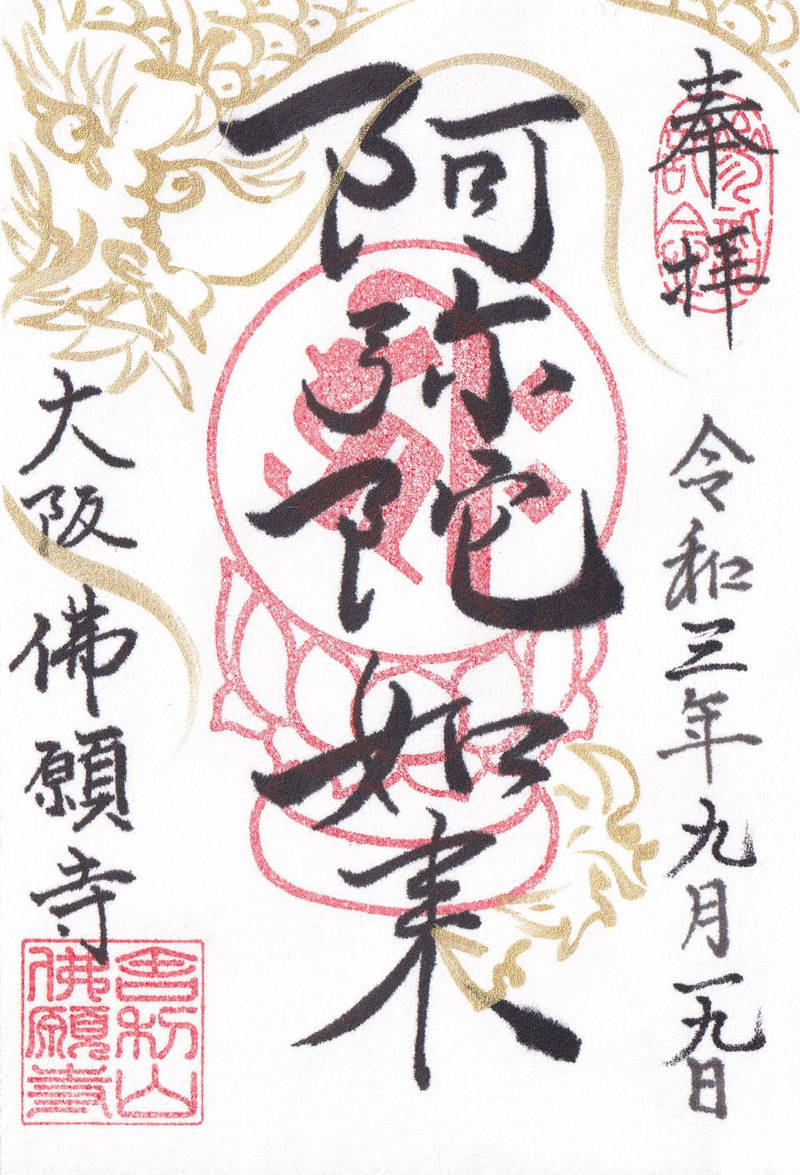 奉拝
令和三年九月一九日
阿弥陀如来
大阪佛願寺
舎利山
佛願寺